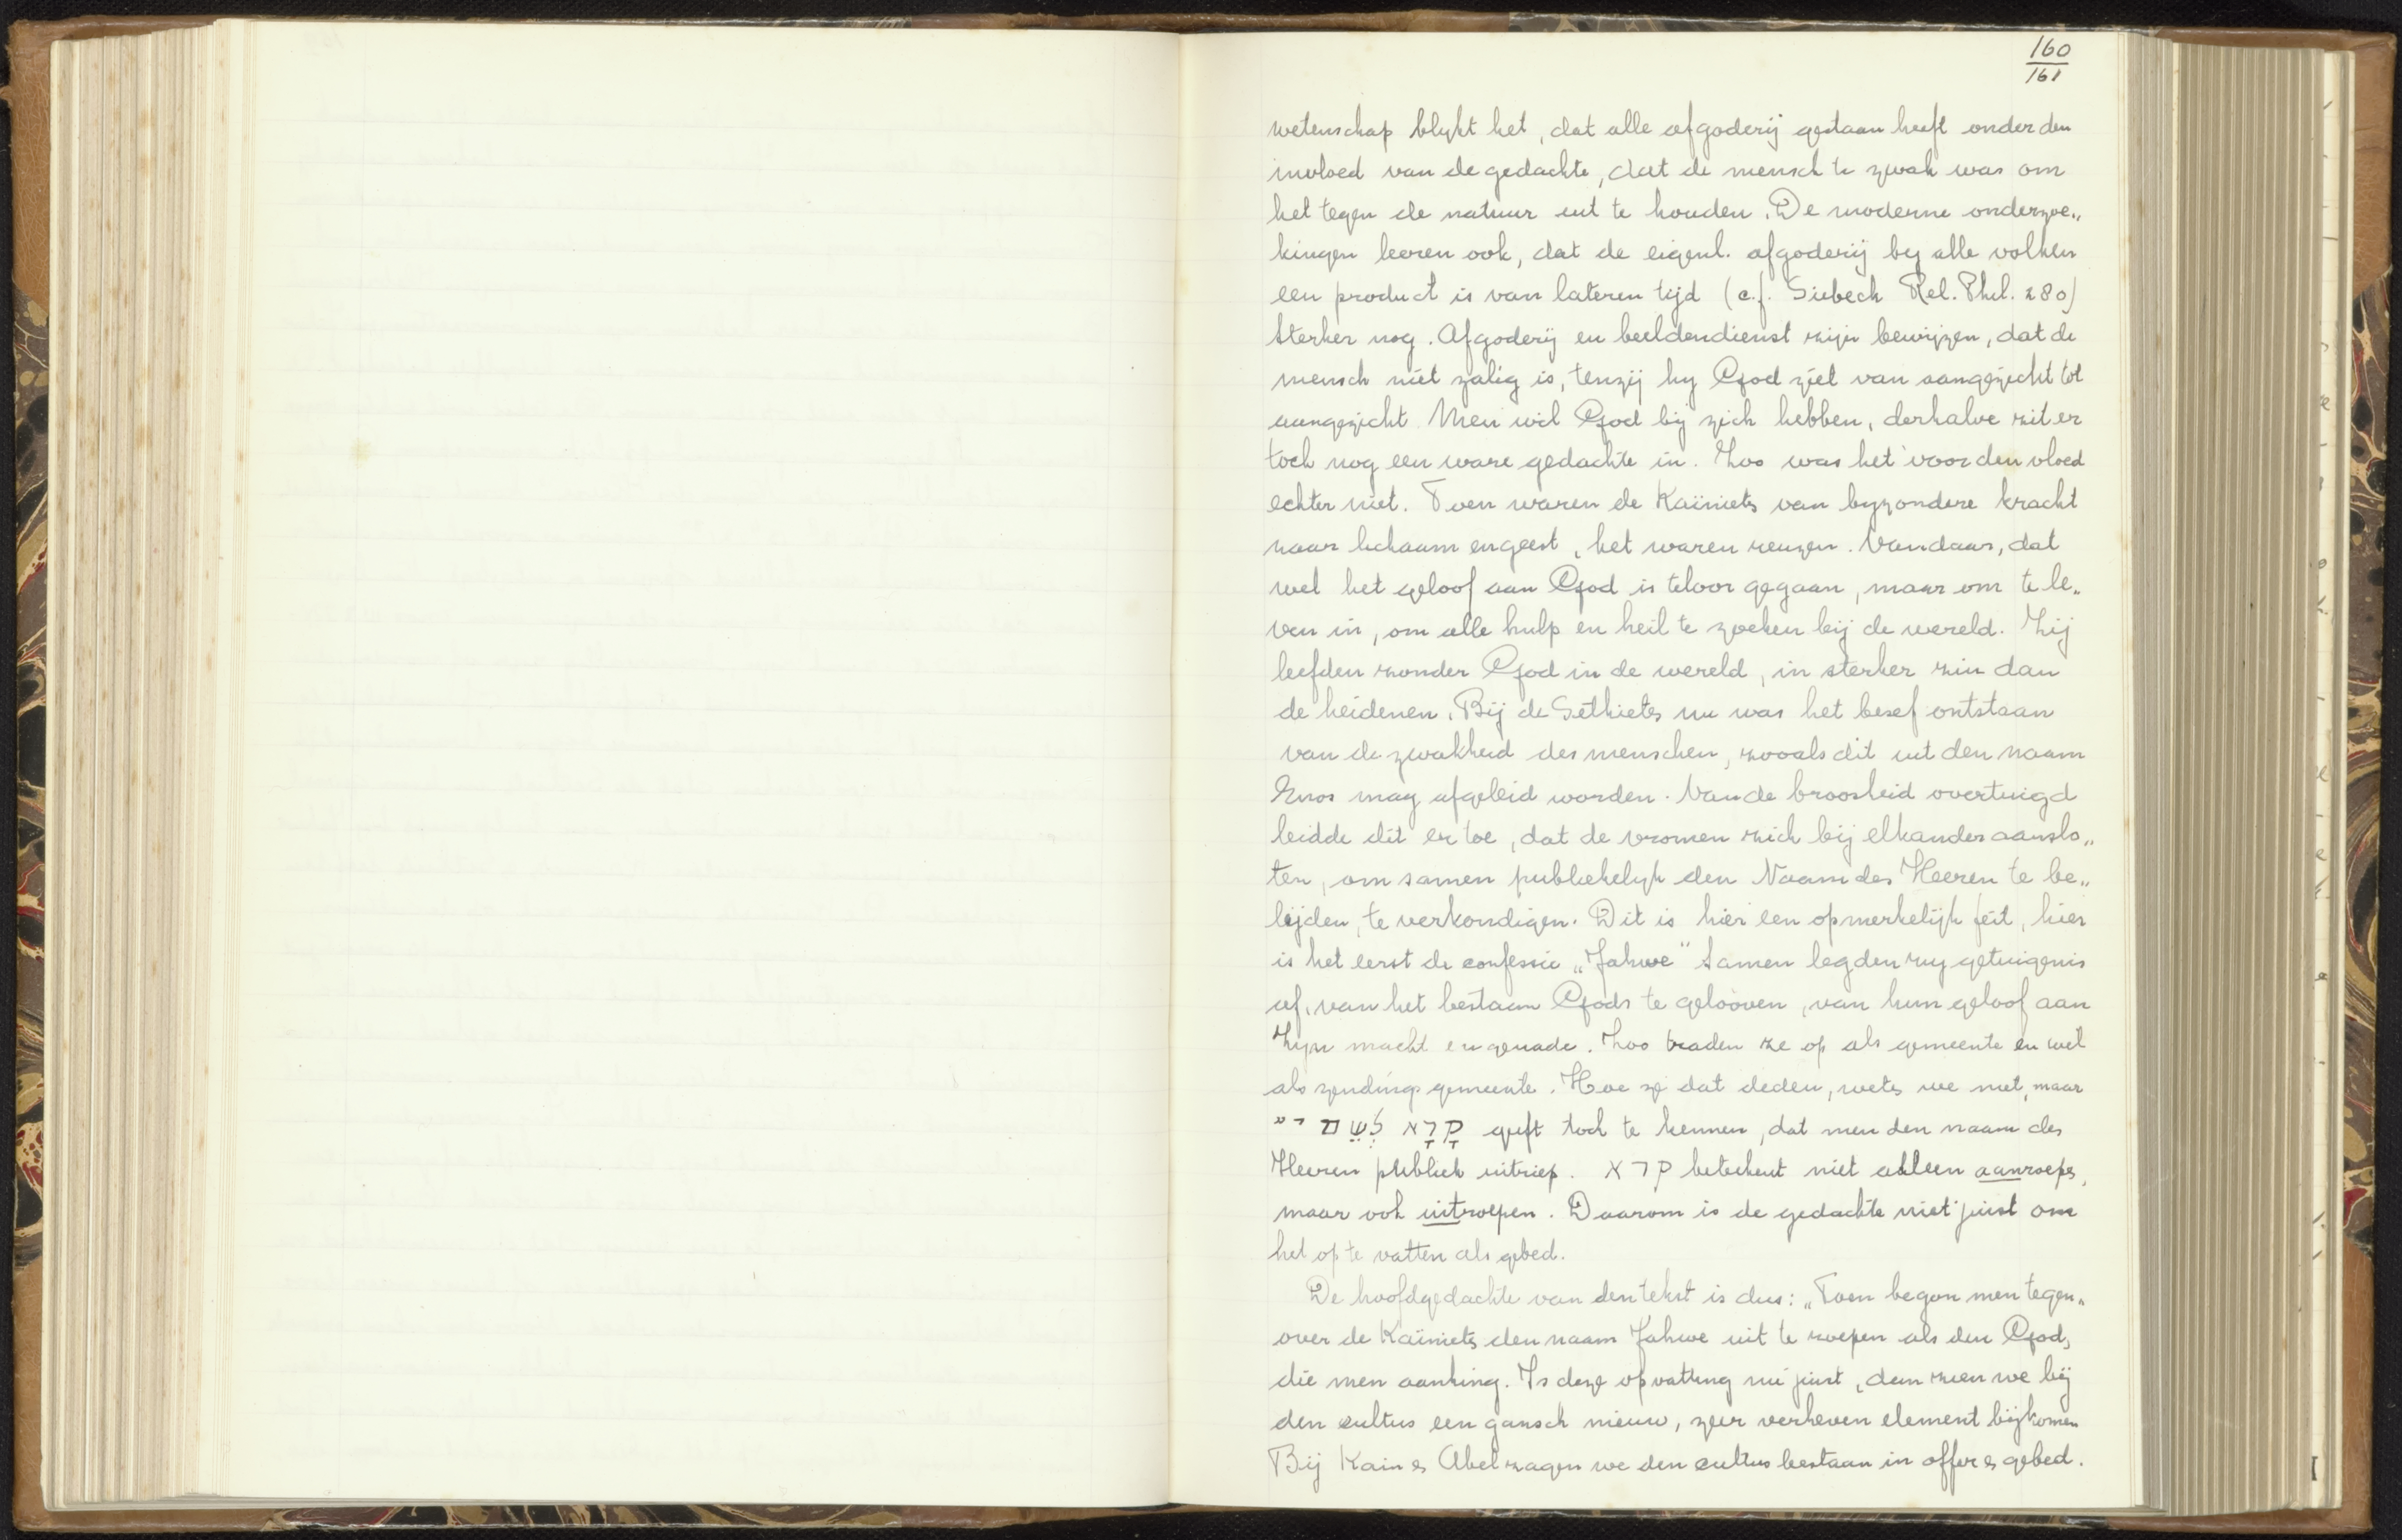 160
161
wetenschap blykt het, dat alle afgoderij gestaan heeft onder den
invloed van de gedachte, dat de mensch te zwak was om
het tegen de natuur uit te houden. De moderne onderzoe„
kingen leeren ook, dat de eigenl. afgoderij by alle volken
een product is van lateren tijd (c.f. Siebeck Rel. Phil. 280)
Sterker nog. Afgoderij en beeldendienst zijn bewijzen, dat de
mensch niet zalig is, tenzij hy God ziet van aangezicht tot
aangezicht Men wil God bij zich hebben, derhalve zit er
toch nog een ware gedachte in. Zoo was het voor den vloed
echter niet. Toen waren de Kaïniets van byzondere kracht
naar lichaam en geest, het waren reuzen. Vandaar, dat
wel het geloof aan God is teloor gegaan, maar om te le„
ven in, om alle hulp en heil te zoeken bij de wereld. Zij
leefden zonder God in de wereld, in sterker zin dan
de heidenen. Bij de Sethiets nu was het besef ontstaan
van de zwakheid des menschen, zooals dit uit den naam
Enos mag afgeleid worden. Van de broosheid overtuigd
leidde dit er toe, dat de vromen zich bij elkander aanslo„
ten, om samen publiekelyk den Naam des Heeren te be„
lijden, te verkondigen. Dit is hier een opmerkelijk feit, hier
is het eerst de confessie „Jahwe" Samen legden zy getuigenis
af, van het bestaan Gods te gelooven, van hun geloof aan
Zyn macht en genade. Zoo traden ze op als gemeente en wel
als zendingsgemeente. Hoe ze dat deden, wets we niet, maar
קָרָא לְשֵׁם י״ geeft toch te kennen, dat men den naam des
Heeren publiek uitriep. קרא beteekent niet alleen aanroeps,
maar ook uitroepen. Daarom is de gedachte niet juist om
het op te vatten als gebed.
De hoofdgedachte van den tekst is dus: „Toen begon men tegen„
over de Kaïniets den naam Jahwe uit te roepen als den God,
die men aanhing. Is deze opvatting nu juist, dan zien we bij
den cultus een gansch nieuw, zeer verheven element bijkomen
Bij Kain es Abel zagen we den cultus bestaan in offer es gebed.